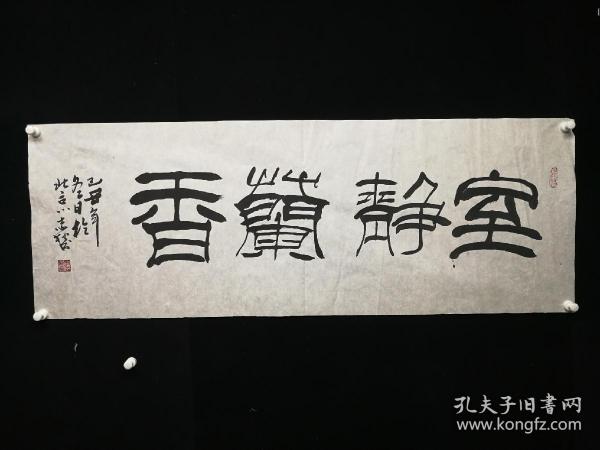 室静蘭香
己丑年
冬日於
北京
孔夫子旧書网
www.kongfz.com